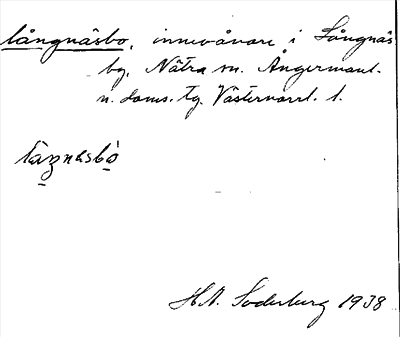 långnäsbo, innevånare i Långnäs
by, Nätra sn. Ångermanl.
n. doms. tg. Västernorrl. l.
låŋnesbo
H.N. Söderberg 1938